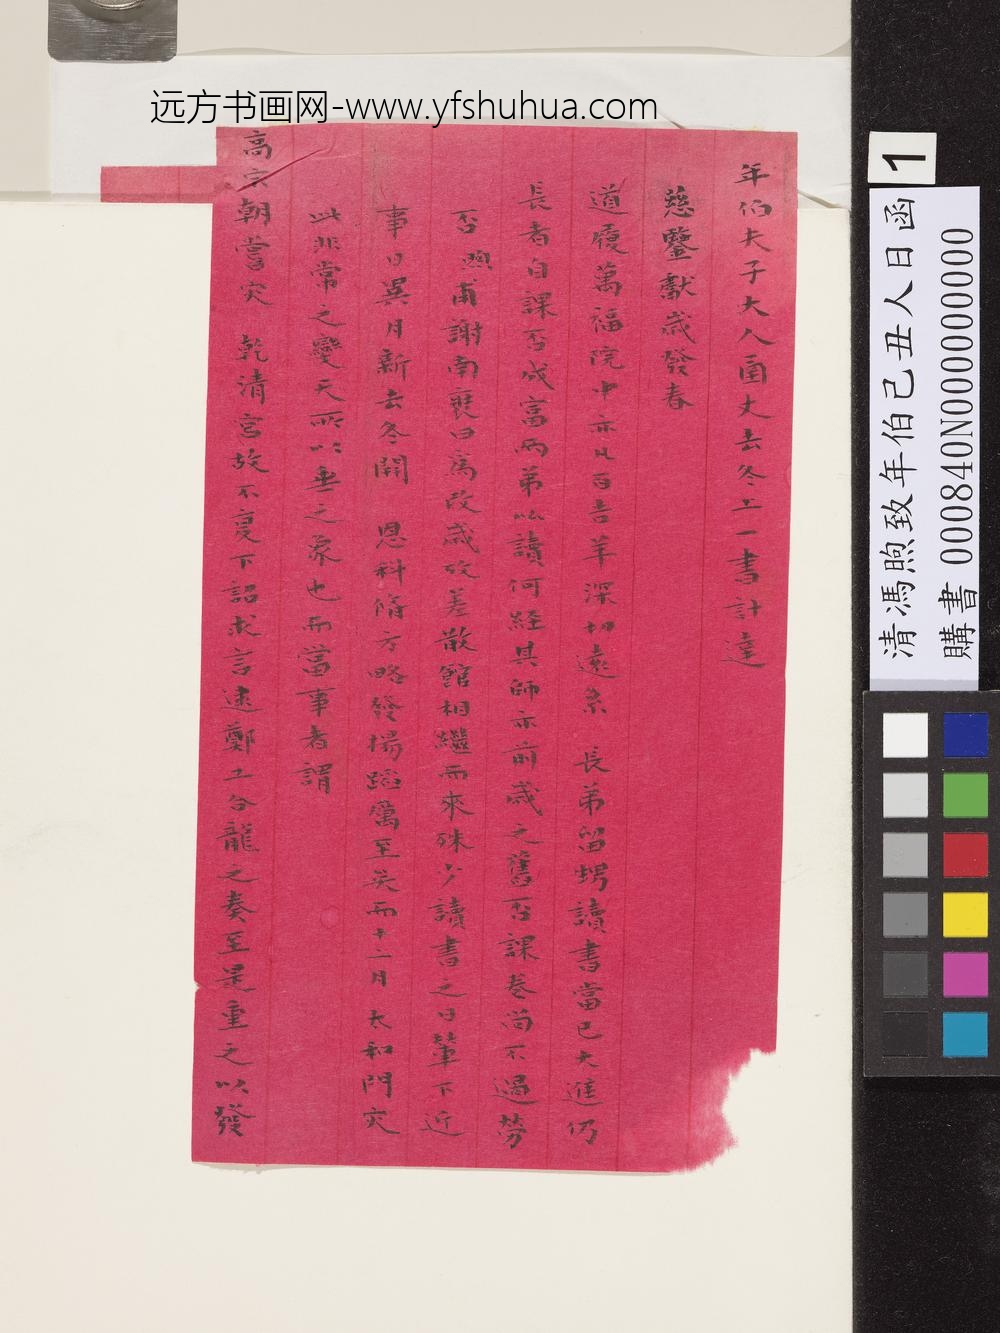 远方书画网-www.yfshuhua.com
年伯夫子大人函丈去冬上一書計達
慈鑒獻歲發春
道履萬福院中亦凡百吉羊深切遠系 長弟留甥讀書當已大進仍
長者自課否成富兩弟以讀何經其師亦前歲之舊否課卷尚不過勞
否煦甫謝南裝曰為改歲改差散館相繼而來殊少讀書之日輦下近
事日異月新去冬開 恩科脩方略發揚蹈厲至矣而十二月太和門灾
此非常之變天所以垂之象也而當事者謂
高宗朝嘗灾 乾清宮故不更下詔求言逮鄭工合龍之奏至是重之以發
1
清馮煦致年伯己丑人日函
購書 000840N000000000